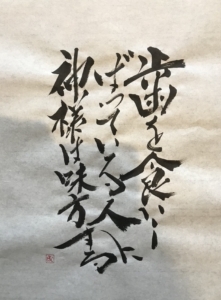 歯を食いし
ばっている人に
神様は味方する